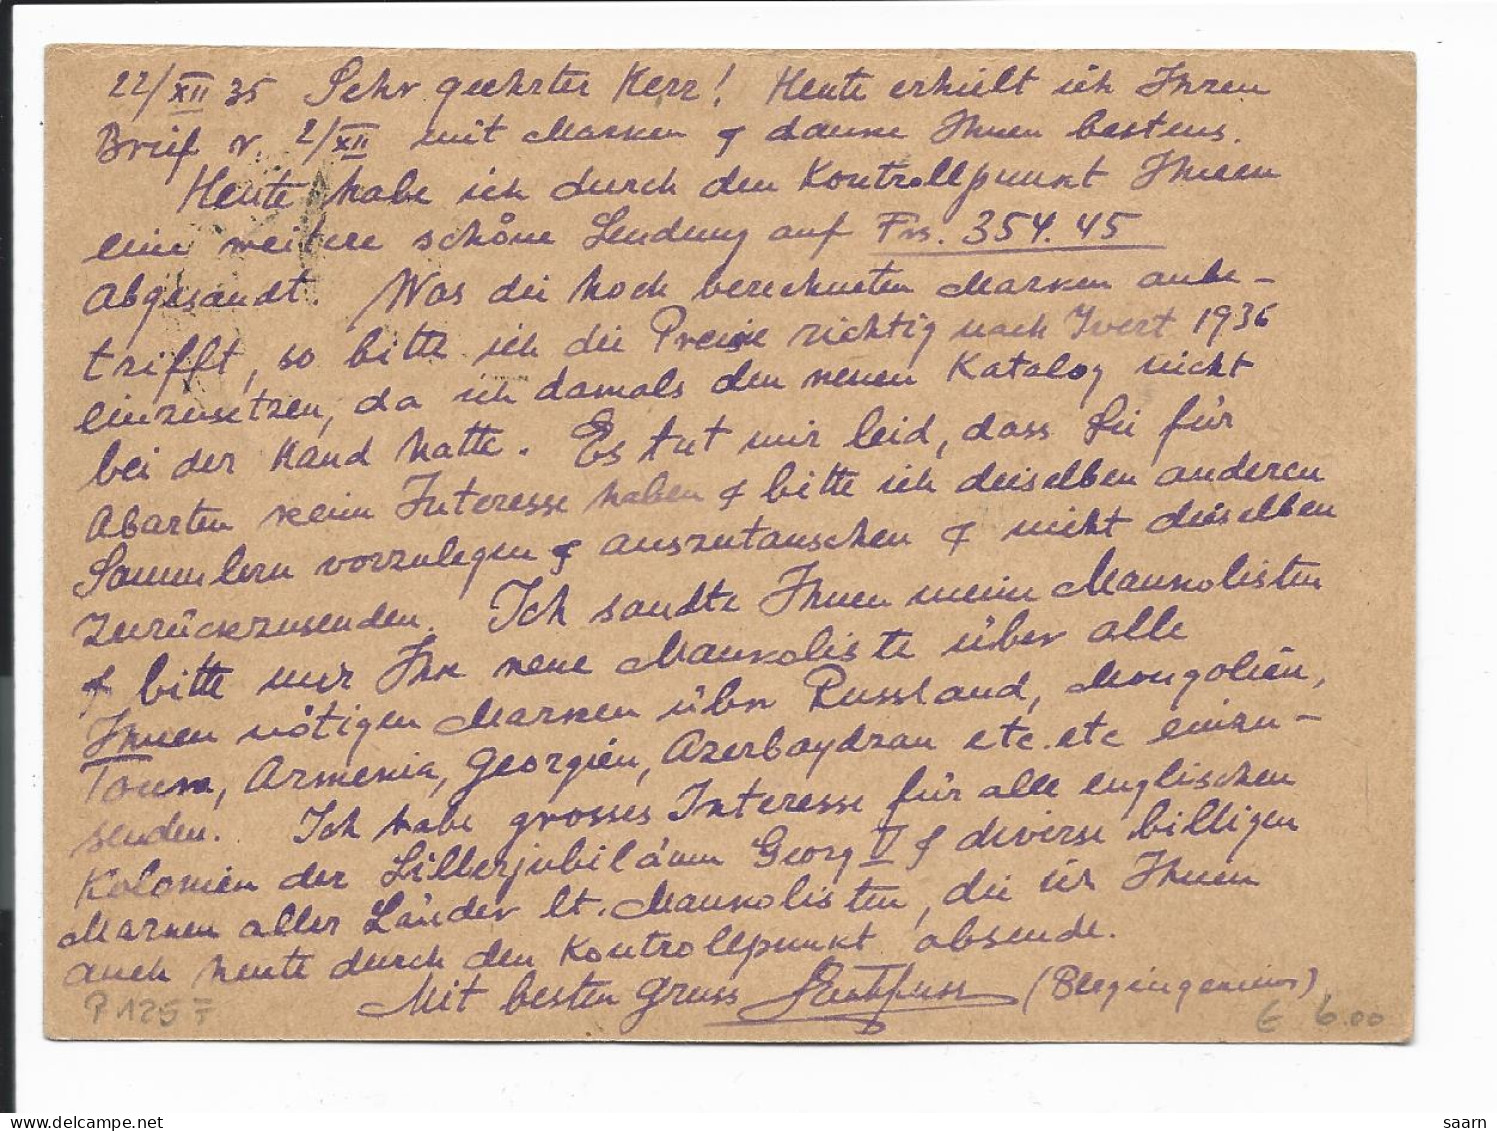 22/XII 35 Sehr geehrter Herr! Heute erhielt ich Ihren
Brief v. 2/XII mit Marken & danke Ihnen bestens.
Heute habe ich durch den Kontrollpunkt Ihnen
eine weitere schöne Sendung auf Frs. 354.45
abgesandt. Was die hoch berechneten Marken anbe-
trifft, so bitte ich die Preise richtig nach Yvert 1936
einzusetzen, da ich damals den neuen Katalog nicht
bei der Hand hatte. Es tut mir leid, dass Sie für
Abarten kein Interesse haben & bitte ich dieselben anderen
Sammlern vorzulegen & auszutauschen & nicht dieselben
zurückzusenden. Ich sandte Ihnen meine Mankolisten
& bitte mir Ihre neue Mankoliste über alle
Ihnen nötigen Marken über Russland, Mongolien,
Touva, Armenia, Georgien, Azerbaydzan etc. etc einzu-
senden. Ich habe grosses Interesse für alle englischen
Kolonien der Silberjubiläum Georg V & diverse billigen
Marken aller Länder lt. Mankolisten, die ich Ihnen
auch heute durch den Kontrollpunkt absende.
Mit besten Gruss (Bergingenieur)
P 125 F
€ 6.00
saarn